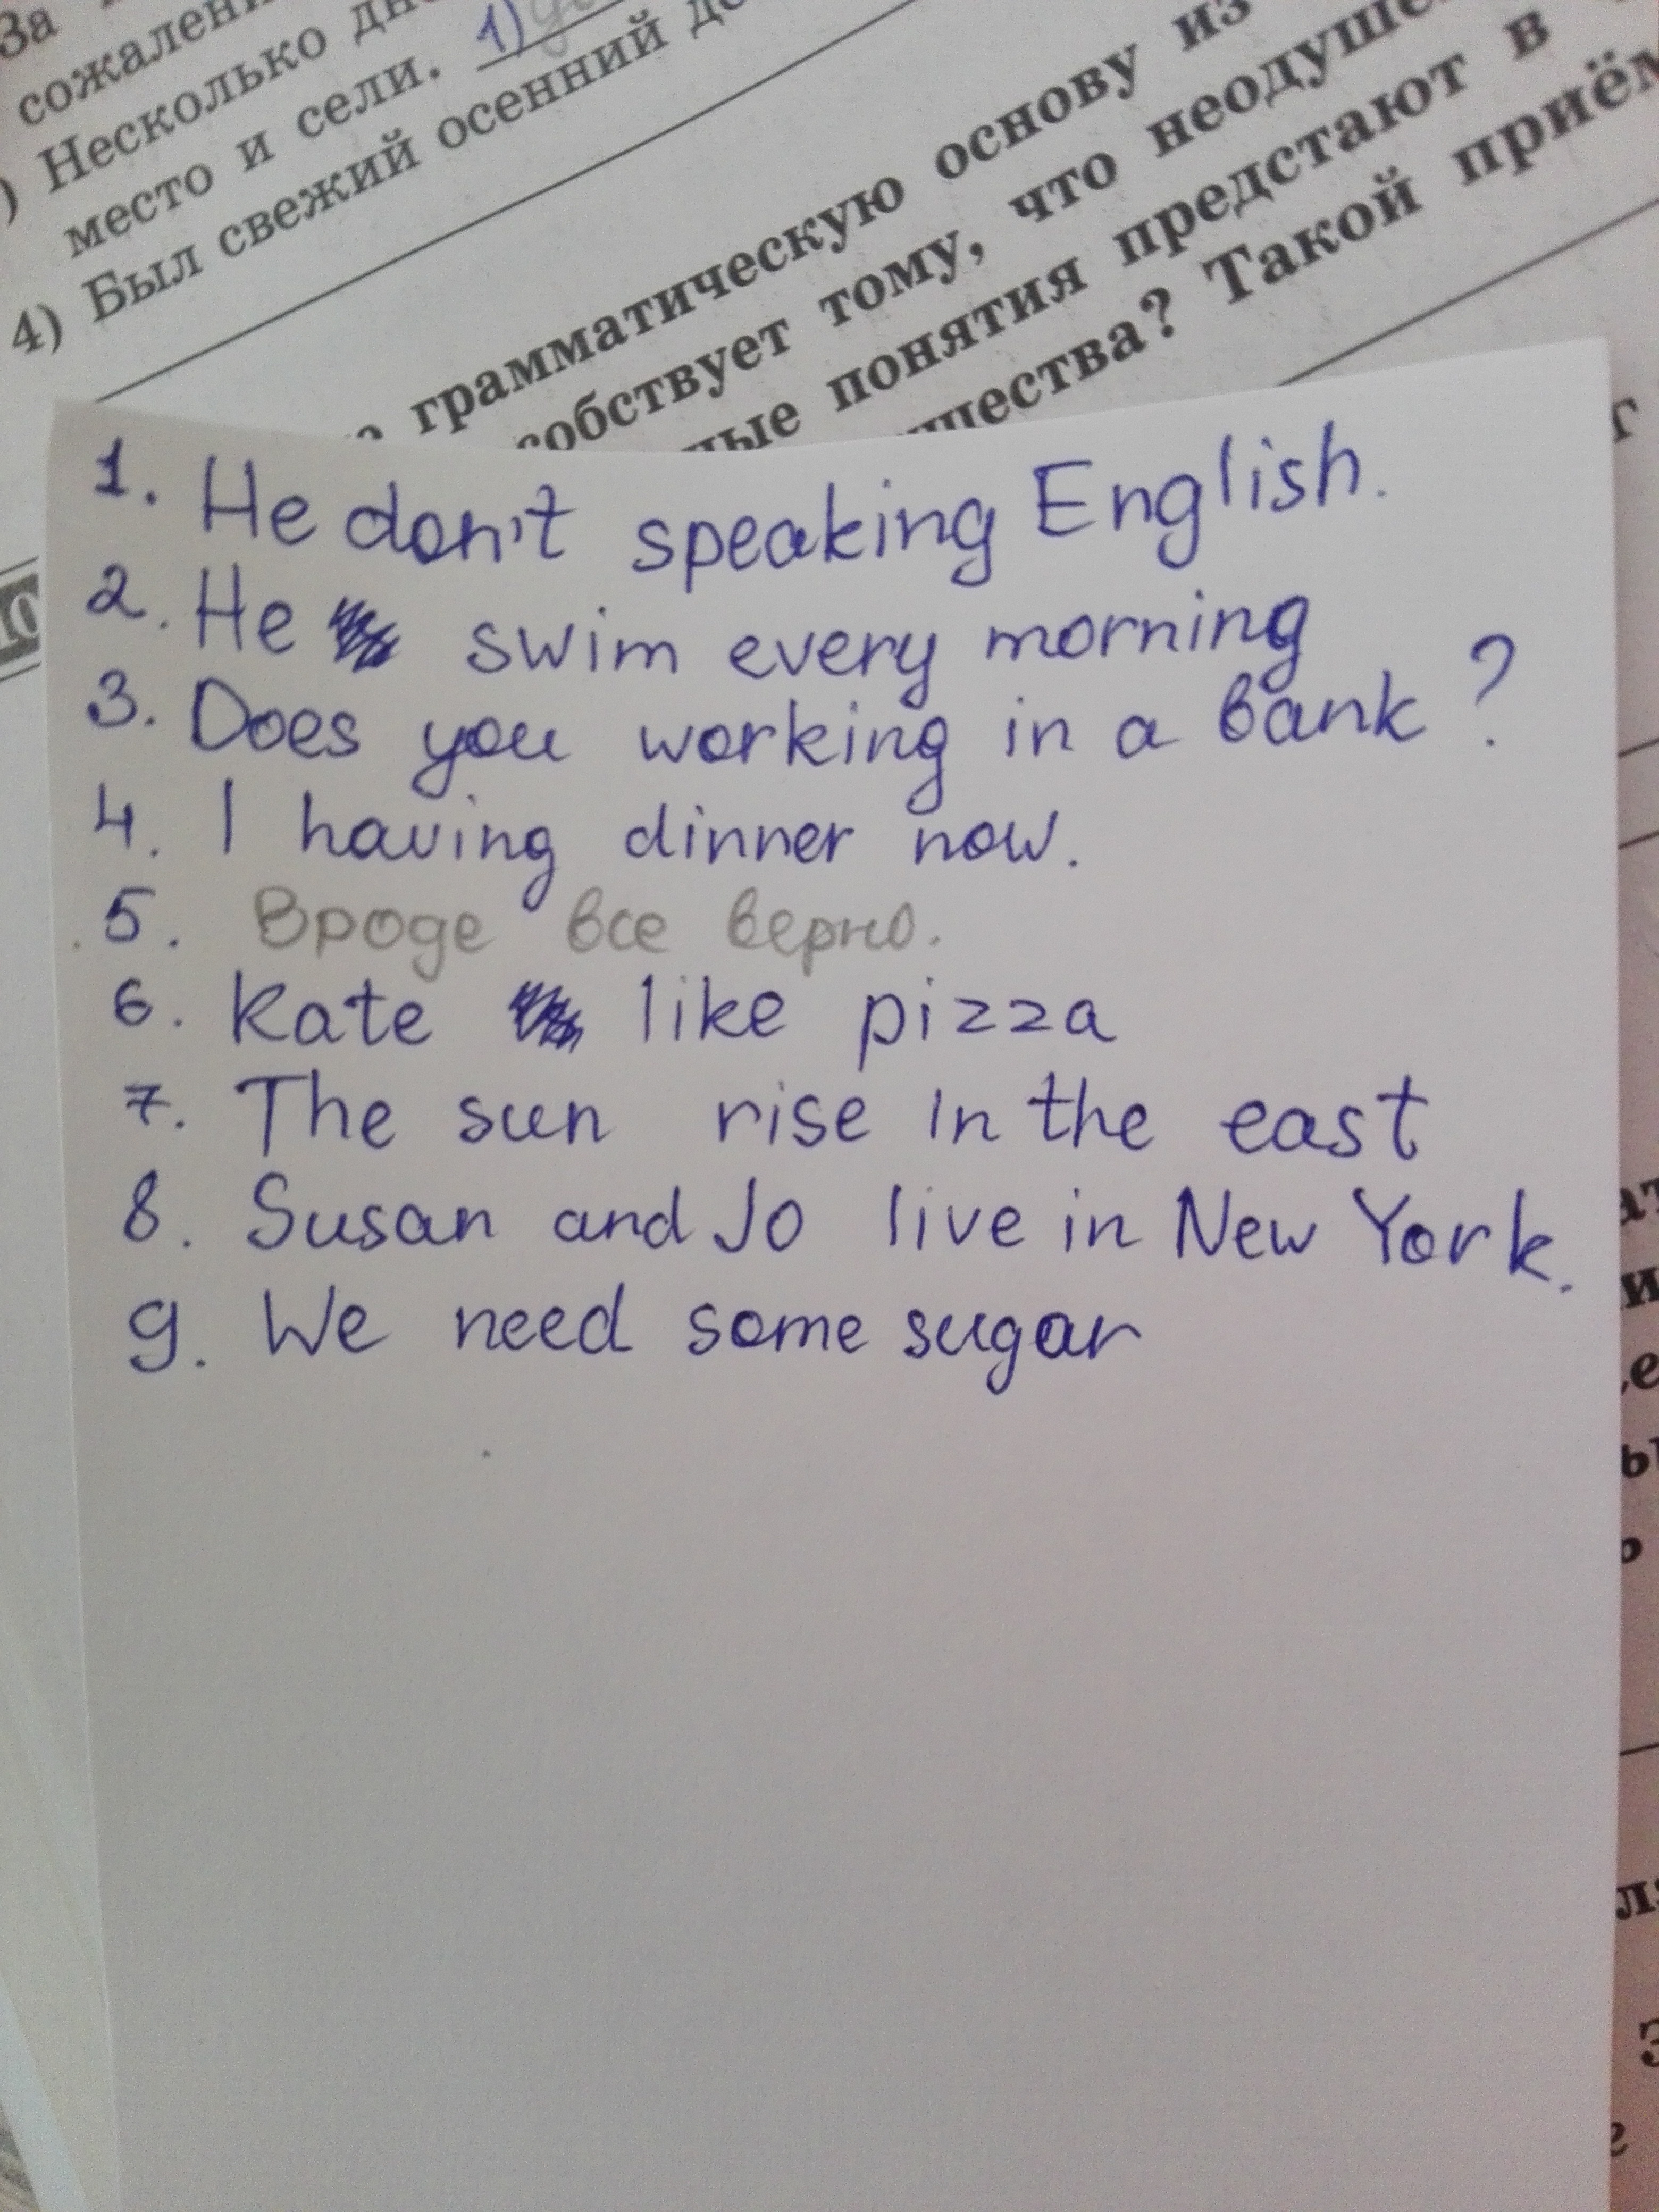 За
сожален
Несколько дн
место и сели. 1)
4) Был свежий осенний де
грамматическую основу из
собствует тому, что неодуше
ные понятия предстают в
щества? Такой приём
1. He don't speaking English.
2. He swim every morning
3. Does you working in a bank?
4. I having dinner now.
5. Вроде все верно.
6. Kate like pizza
7. The sun rise in the east
8. Susan and Jo live in New York.
9. We need some sugar